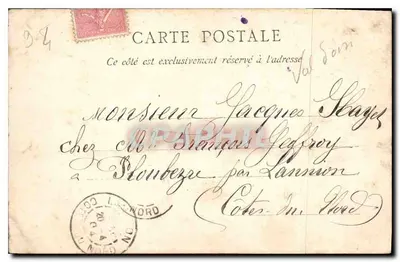 94
CARTE POSTALE
Ce côté est exclusivement réservé à l'adresse
Val
Monsieur Jacques
chez Mr François Geffroy
à Ploubezre par Lannion
(Côtes-du-Nord)